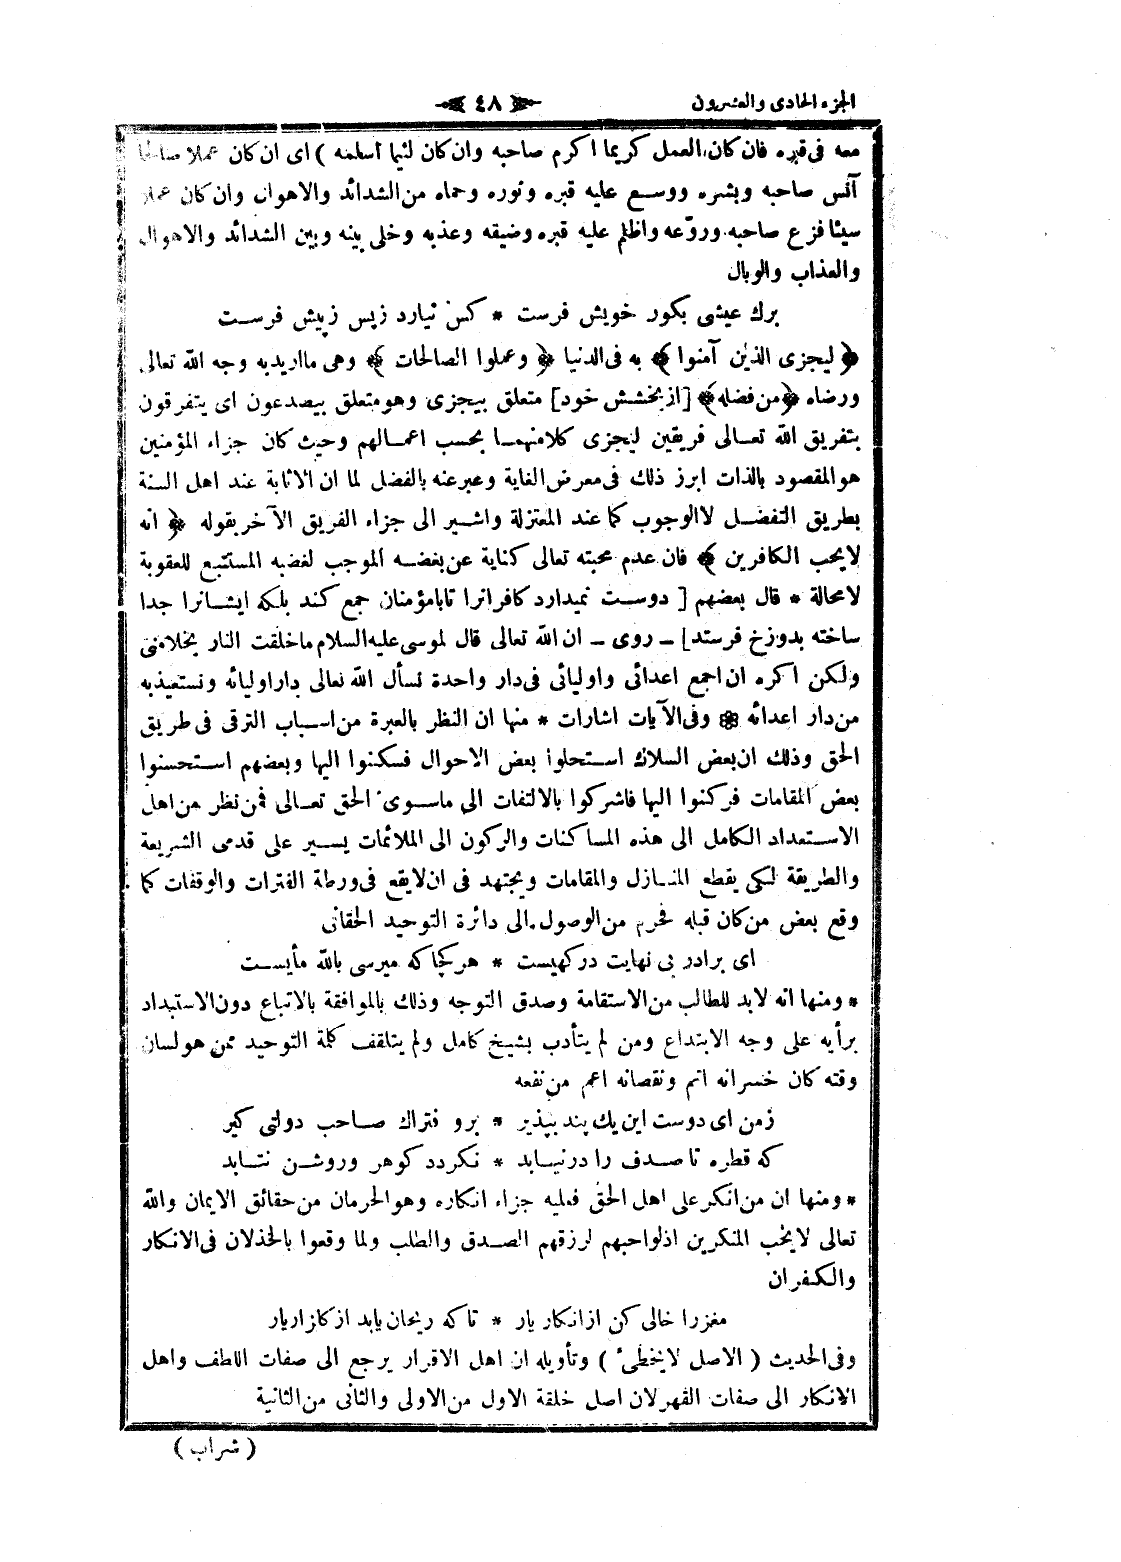 الجزء الحادى والعشرون
٤٨
معه فى قبره فان كان العمل كريما اكرم صاحبه وان كان لئيما اسلمه ) اى ان كان عملا صالحا
آنس صاحبه وبشره ووسع عليه قبره ونوره وحماه من الشدائد والاهوال وان كان عملا
سيئا فزع صاحبه وروّعه واظلم عليه قبره وضيقه وعذبه وخلى بينه وبين الشدائد والاهوال
والعذاب والوبال
برك عيشى بكور خويش فرست * كس نيارد زپس زپيش فرست
﴿ ليجزى الذين آمنوا ﴾ به فى الدنيا ﴿ وعملوا الصالحات ﴾ وهى مااريدبه وجه الله تعالى
ورضاه ﴿ من فضله ﴾ [ ازبخشش خود ] متعلق بيجزى وهو متعلق بيصدعون اى يتفرقون
بتفريق الله تعالى فريقين ليجزى كلامنهما بحسب اعمالهم وحيث كان جزاء المؤمنين
هو المقصود بالذات ابرز ذلك فى معرض الغاية وعبر عنه بالفضل لما ان الاثابة عند اهل السنة
بطريق التفضل لا الوجوب كما عند المعتزلة واشير الى جزاء الفريق الآخر بقوله ﴿ انه
لايحب الكافرين ﴾ فان عدم محبته تعالى كناية عن بغضه الموجب لغضبه المستتبع للعقوبة
لامحالة * قال بعضهم [ دوست نميدارد كافرانرا تابامؤمنان جمع كند بلكه ايشانرا جدا
ساخته بدوزخ فرستد ] ـ روى ـ ان الله تعالى قال لموسى عليه السلام ماخلقت النار بخلامنى
ولكن اكره ان اجمع اعدائى واوليائى فى دار واحدة نسأل الله تعالى دار اوليائه ونستعيذبه
من دار اعدائه ۞ وفى الآيات اشارات * منها ان النظر بالعبرة من اسباب الترقى فى طريق
الحق وذلك ان بعض السلاك استحلوا بعض الاحوال فسكنوا اليها وبعضهم استحسنوا
بعض المقامات فركنوا اليها فاشركوا بالالتفات الى ماسوى الحق تعالى فمن نظر من اهل
الاستعداد الكامل الى هذه المساكنات والركون الى الملائمات يسير على قدمى الشريعة
والطريقة لكى يقطع المنازل والمقامات ويجتهد فى ان لايقع فى ورطة الفترات والوقفات كما
وقع بعض من كان قبله فحرم من الوصول الى دائرة التوحيد الحقانى
اى برادر بى نهايت دركهيست * هركجا كه ميرسى بالله مأيست
* ومنها انه لابد للطالب من الاستقامة وصدق التوجه وذلك بالموافقة بالاتباع دون الاستبداد
برأيه على وجه الابتداع ومن لم يتأدب بشيخ كامل ولم يتلقف كلمة التوحيد ممن هو لسان
وقته كان خسرانه اتم ونقصانه اعم من نفعه
زمن اى دوست اين يك پند بپذير * برو فتراك صاحب دولتى كير
كه قطره تا صدف را درنيابد * نكردد كوهر وروشن نتابد
* ومنها ان من انكر على اهل الحق فعليه جزاء انكاره وهو الحرمان من حقائق الايمان والله
تعالى لايحب المنكرين اذلواحبهم لرزقهم الصدق والطلب ولما وقعوا بالخذلان فى الانكار
والكفران
مغزرا خالى كن از انكار يار * تاكه ريحان يابد از كلزار يار
وفى الحديث ( الاصل لايخطئ ) وتأويله ان اهل الاقرار يرجع الى صفات اللطف واهل
الانكار الى صفات القهر لان اصل خلقة الاول من الاولى والثانى من الثانية
( شراب )